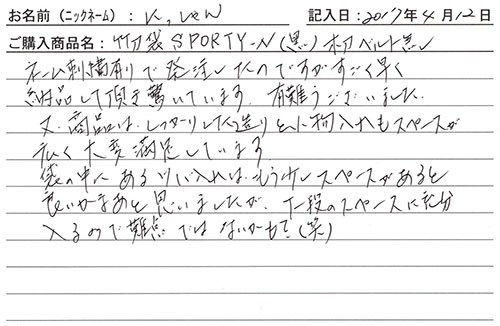 お名前（ニックネーム）：K,しゃん 記入日：2017年4月12日
ご購入商品名：竹刀袋SPORTY-N(黒)木刀ベルト無し
ネーム刺繍有りで発注したのですがすごく早く
納品して頂き驚いています。有難うございました。
又、商品は、しっかりした造りと小物入れもスペースが
広く大変満足しています
袋の中にある 入れは、もう少しスペースがあると
良いかなあと思いましたが、下段のスペースに充分
入るので難点ではないかも?(笑)